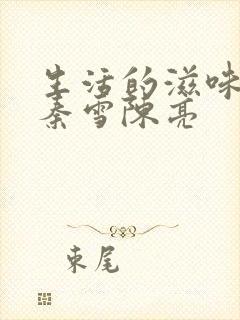 生活的滋味
秦雪陈亮
束尾